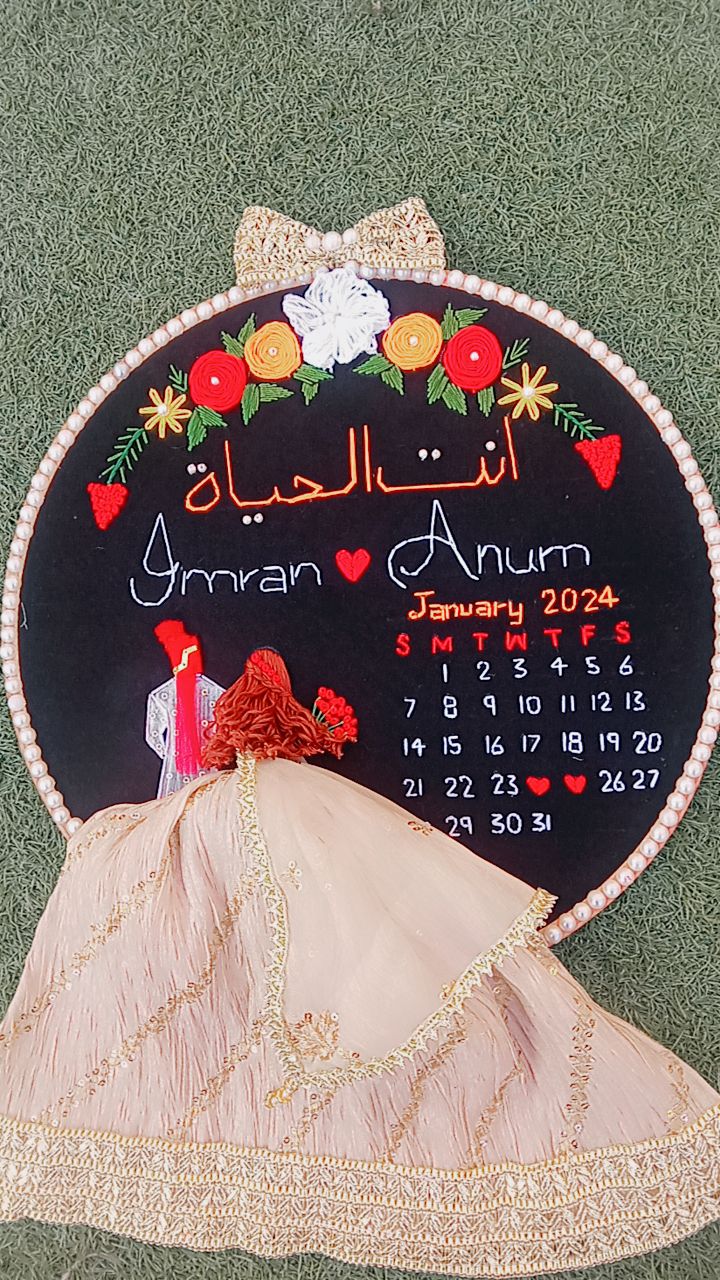 انت الحياة
Imran Anum
January 2024
S M T W T F S
1 2 3 4 5 6
7 8 9 10 11 12 13
14 15 16 17 18 19 20
21 22 23 26 27
29 30 31